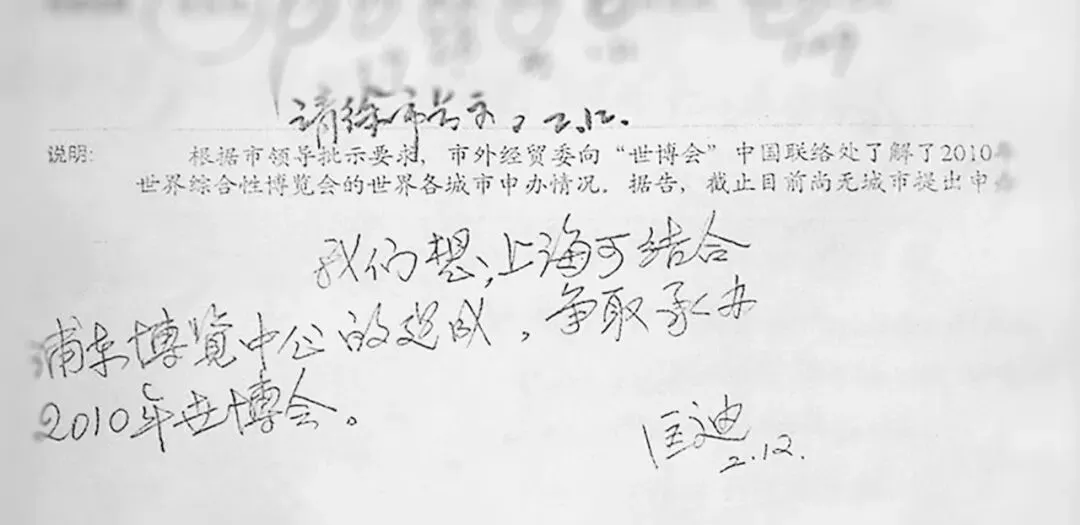 请徐市长示，2.12.
说明: 根据市领导批示要求，市外经贸委向“世博会”中国联络处了解了2010年
世界综合性博览会的世界各城市申办情况．据告，截止目前尚无城市提出申
我们想，上海可结合
浦东博览中心的建成，争取承办
2010年世博会。
匡迪
2.12.